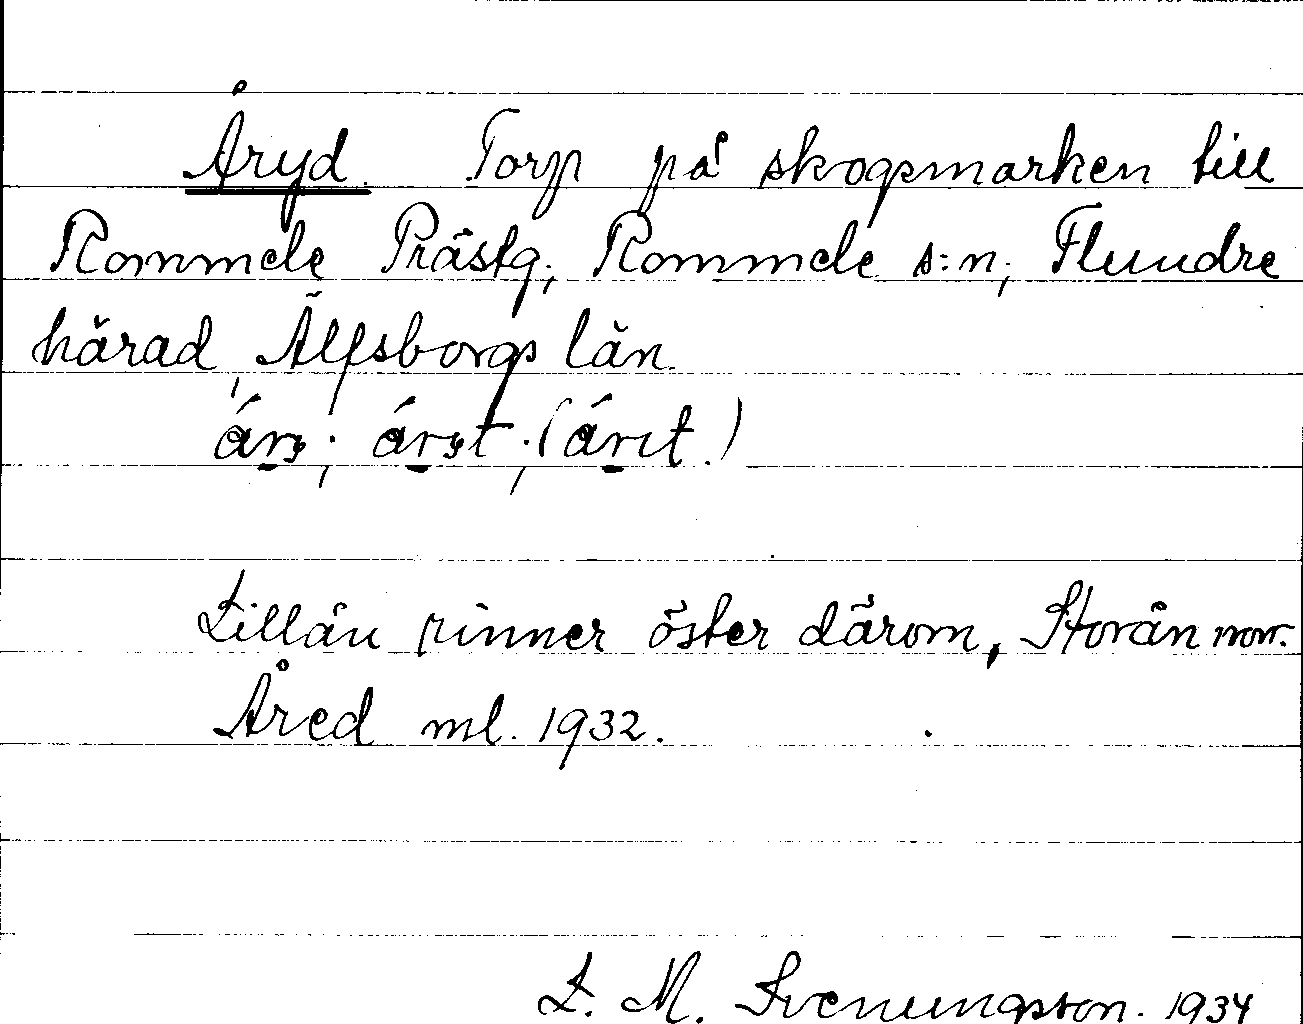 Åryd Torp på skogsmarken till
Rommele Prästg; Rommele s:n; Flundre
härad, Älfsborgs län.
Lillån rinner öster därom, Storån norr.
Åred ml. 1932.
L. M. Svenungsson. 1934